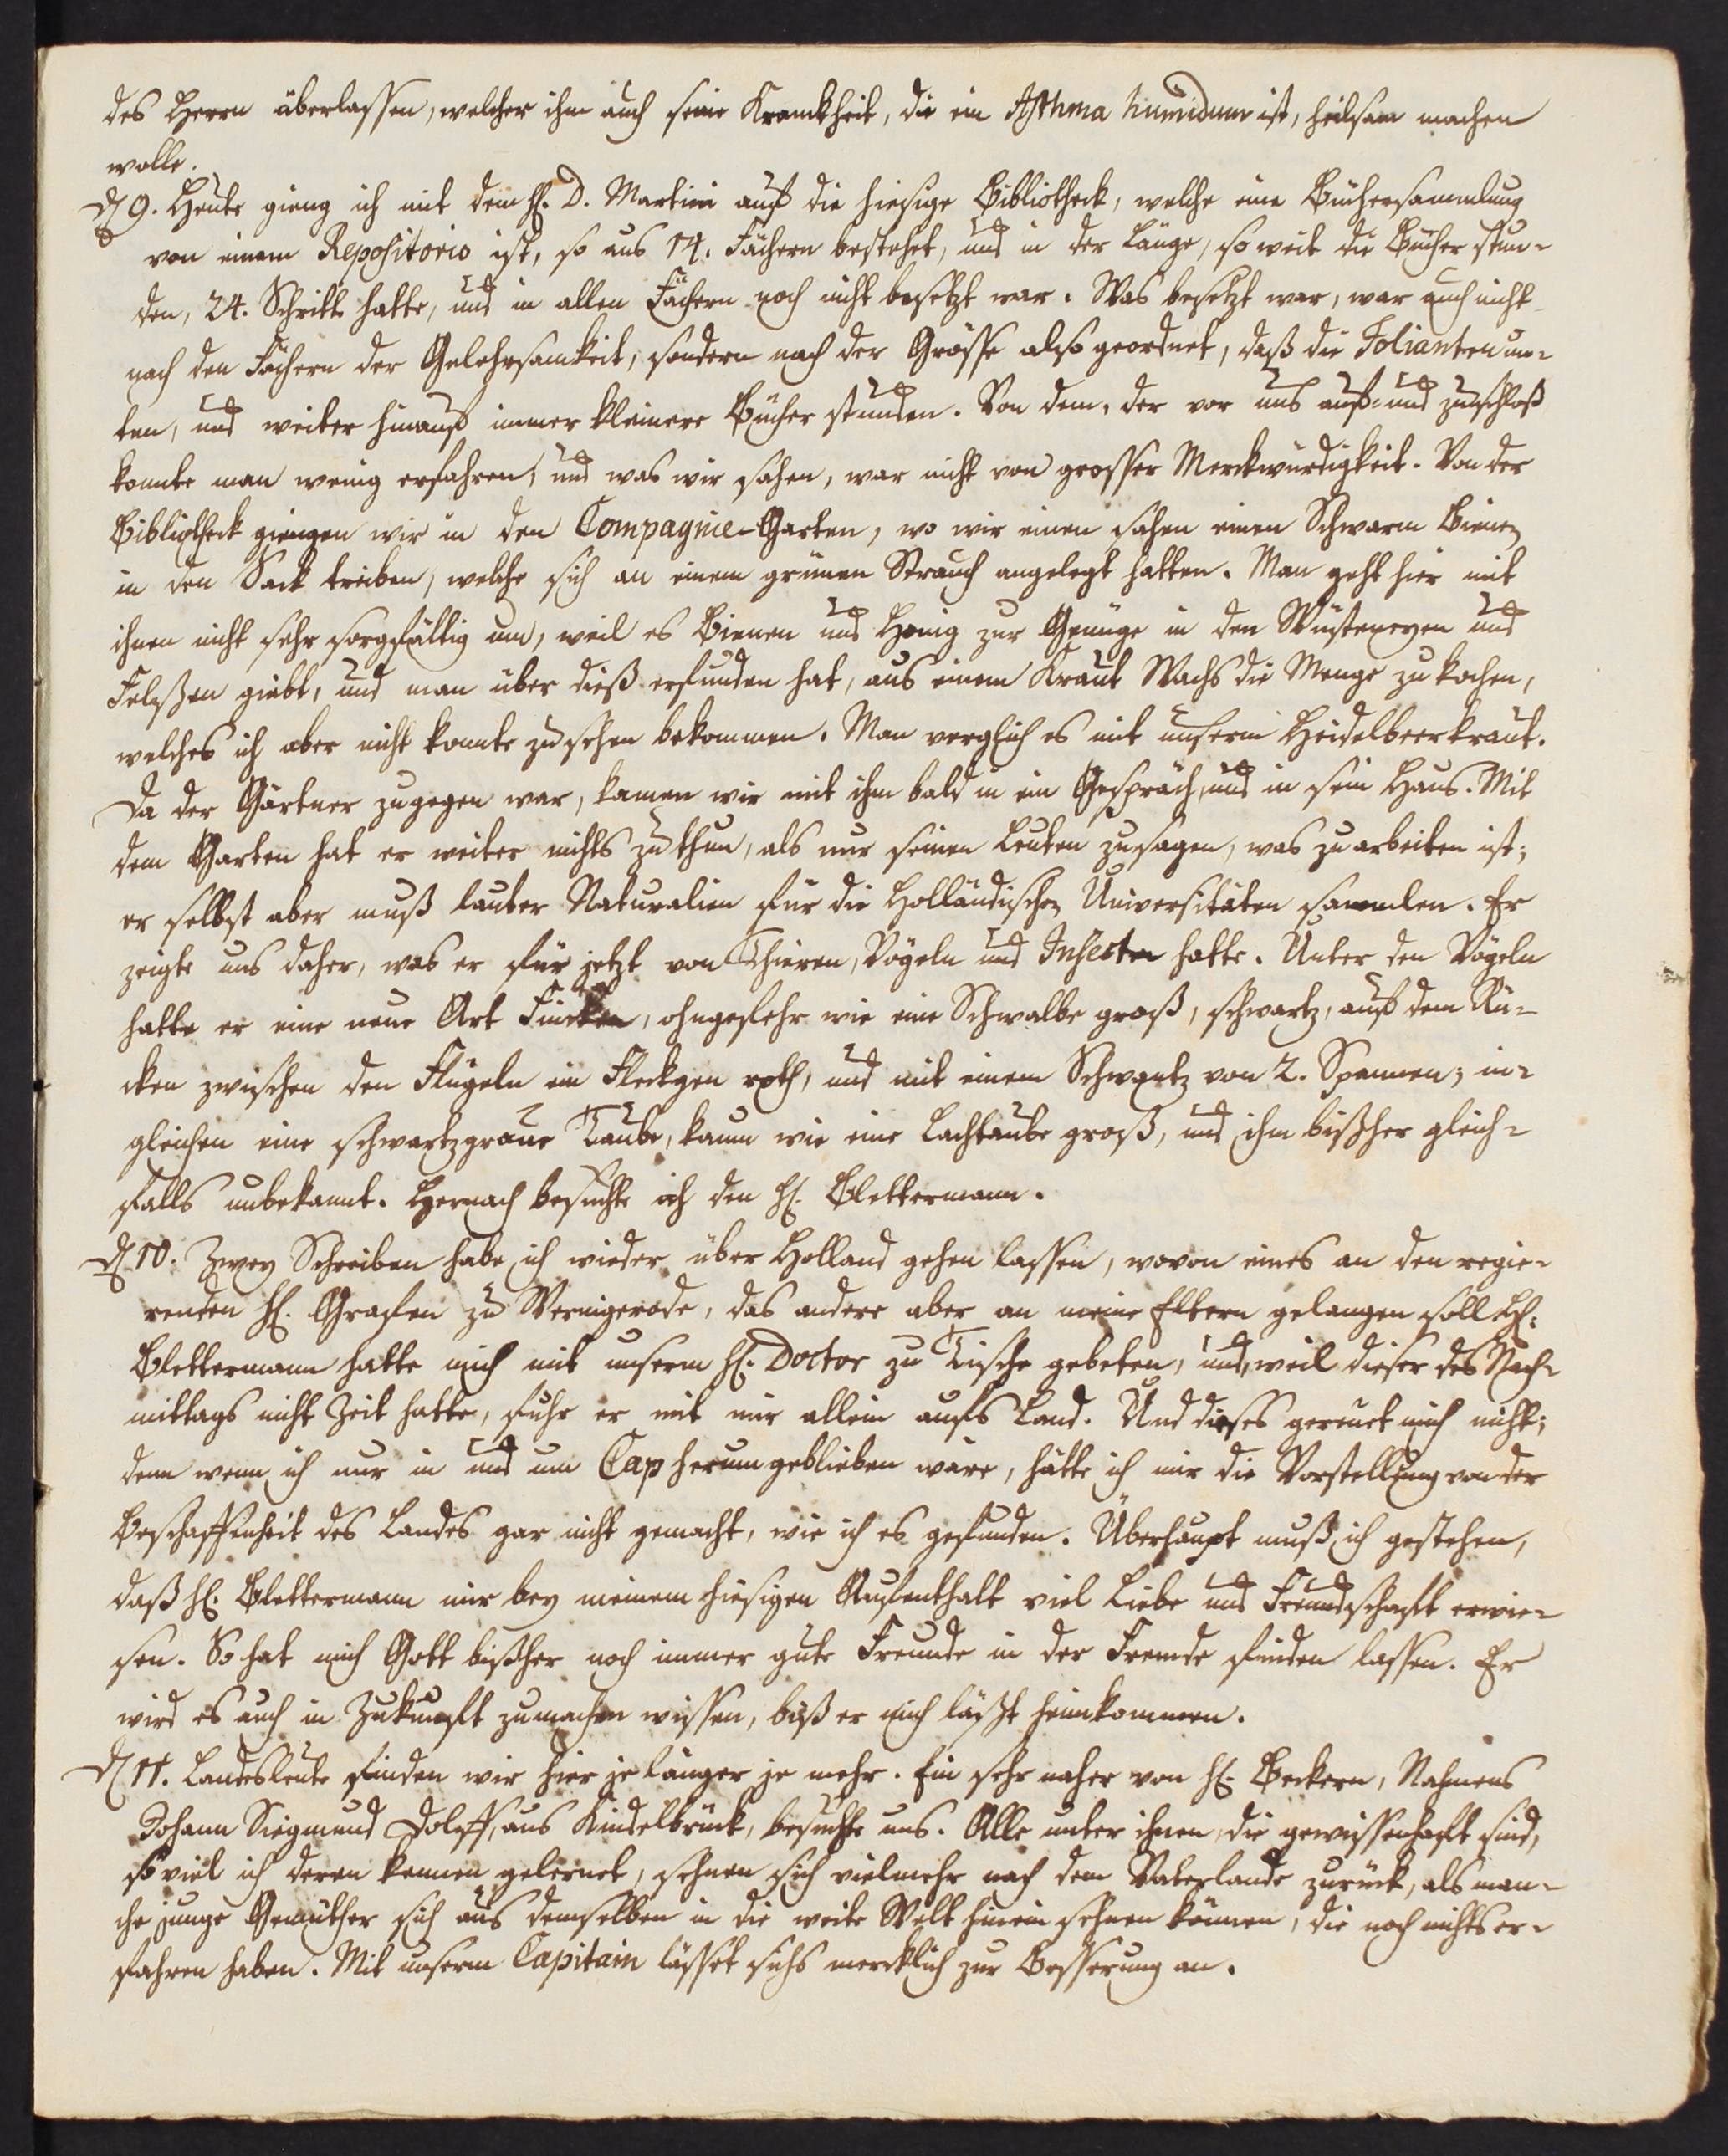 des Herrn überlassen, welcher ihm auch seine Kranckheit, die ein Asthma humidum ist, heilsam machen
wolle.
d 9. Heute gieng ich mit dem H. D. Martini auf die hiesige Bibliotheck, welche eine Büchersammlung
von einem Repositorio ist, so aus 14. Fächern bestehet, und in der Länge, so weit die Bücher stun-
den, 24. Schritt hatte, und in allen Fächern noch nicht besetzt war. Was besetzt war, war auch nicht
nach den Fächern der Gelehrsamkeit, sondern nach der Grösse also geordnet, daß die Folianten un-
ten, und weiter hinauf immer kleinere Bücher stunden. Von dem, der vor uns auf- und zuschloß
konnte man wenig erfahren, und was wir sahen, war nicht von grosser Merckwürdigkeit. Von der
Bibliotheck giengen wir in den Compagnie-Garten, wo wir einen sahen einen Schwarm Bienen
in den Sack treiben, welche sich an einem grünen Strauch angelegt hatten. Man geht hier mit
ihnen nicht sehr sorgfältig um, weil es Bienen und Honig zur Genüge in den Wüsteneyen und
Felßen giebt, und man über dieß erfunden hat, aus einem Kraut Wachs die Menge zu kochen,
welches ich aber nicht konnte zu sehen bekommen. Man verglich es mit unserm Heidelbeerkraut.
Da der Gärtner zugegen war, kamen wir mit ihm bald in ein Gespräch, und in sein Haus. Mit
dem Garten hat er weiter nichts zu thun, als nur seinen Leuten zu sagen, was zu arbeiten ist;
er selbst aber muß lauter Naturalien für die Holländischen Universitäten sammlen. Er
zeigte uns daher, was er für jetzt von Thieren, Vögeln und Insecten hatte. Unter den Vögeln
hatte er eine neue Art Fincken, ohngefehr wie eine Schwalbe groß, schwartz, auf dem Rü-
cken zwischen den Flügeln ein Fleckgen roth, und mit einem Schwantz von 2. Spannen; in-
gleichen eine schwartzgraue Taube, kaum wie eine Lachtaube groß, und ihm bißher gleich-
falls unbekannt. Hernach besuchte ich den H. Blettermann.
d 10. Zwey Schreiben habe ich wieder über Holland gehen lassen, wovon eines an den regie-
renden H. Grafen zu Wernigerode, das andere aber an meine Eltern gelangen soll. H.
Blettermann hatte mich mit unserm H. Doctor zu Tische gebeten, und, weil dieser des Nach-
mittags nicht Zeit hatte, fuhr er mit mir allein aufs Land. Und dieses gereuet mich nicht;
denn wenn ich nur in und um Cap herum geblieben wäre, hätte ich mir die Vorstellung von der
Beschaffenheit des Landes gar nicht gemacht, wie ich es gefunden. Überhaupt muß ich gestehen,
daß H. Blettermann mir bey meinem hiesigen Aufenthalt viel Liebe und Freundschaft erwie-
sen. So hat mich Gott bißher noch immer gute Freunde in der Fremde finden lassen. Er
wird es auch in Zukunft zu machen wissen, biß er mich läßt heimkommen.
d 11. Landesleute finden wir hier je länger je mehr. Ein sehr naher von H. Beckern, Nahmens
Johann Siegmund Dolff, aus Kindelbrück, besuchte uns. Alle unter ihnen, die gewissenhaft sind,
so viel ich deren kennen gelernet, sehnen sich vielmehr nach dem Vaterlande zurück, als man-
che junge Gemüther sich aus demselben in die weite Welt hinein sehnen können, die noch nichts er-
fahren haben. Mit unserm Capitain lässet sichs mercklich zur Besserung an.